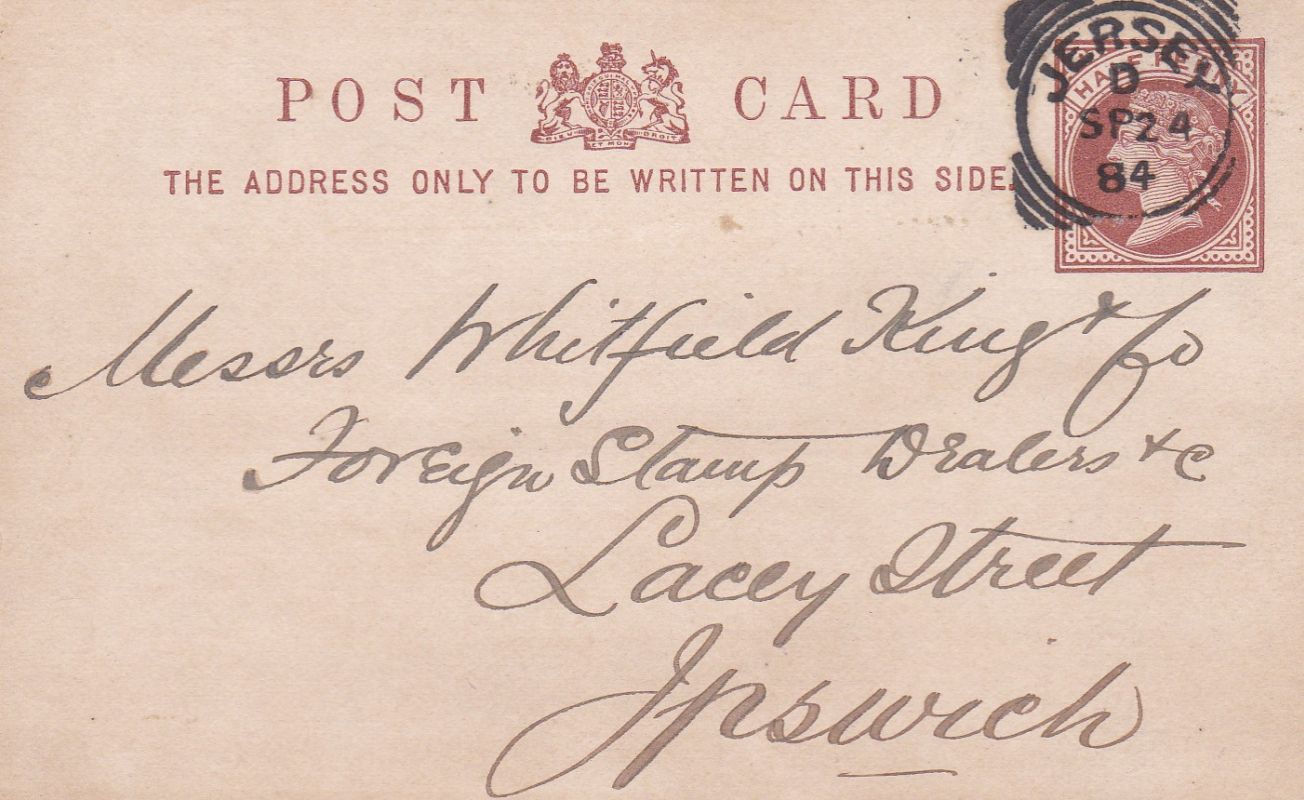 POST CARD
DIEU ET MON DROIT
THE ADDRESS ONLY TO BE WRITTEN ON THIS SIDE.
HALF PENNY
JERSEY
D
SP 24
84
Messrs Whitfield King & Co
Foreign Stamp Dealers & c
Lacey Street
Ipswich